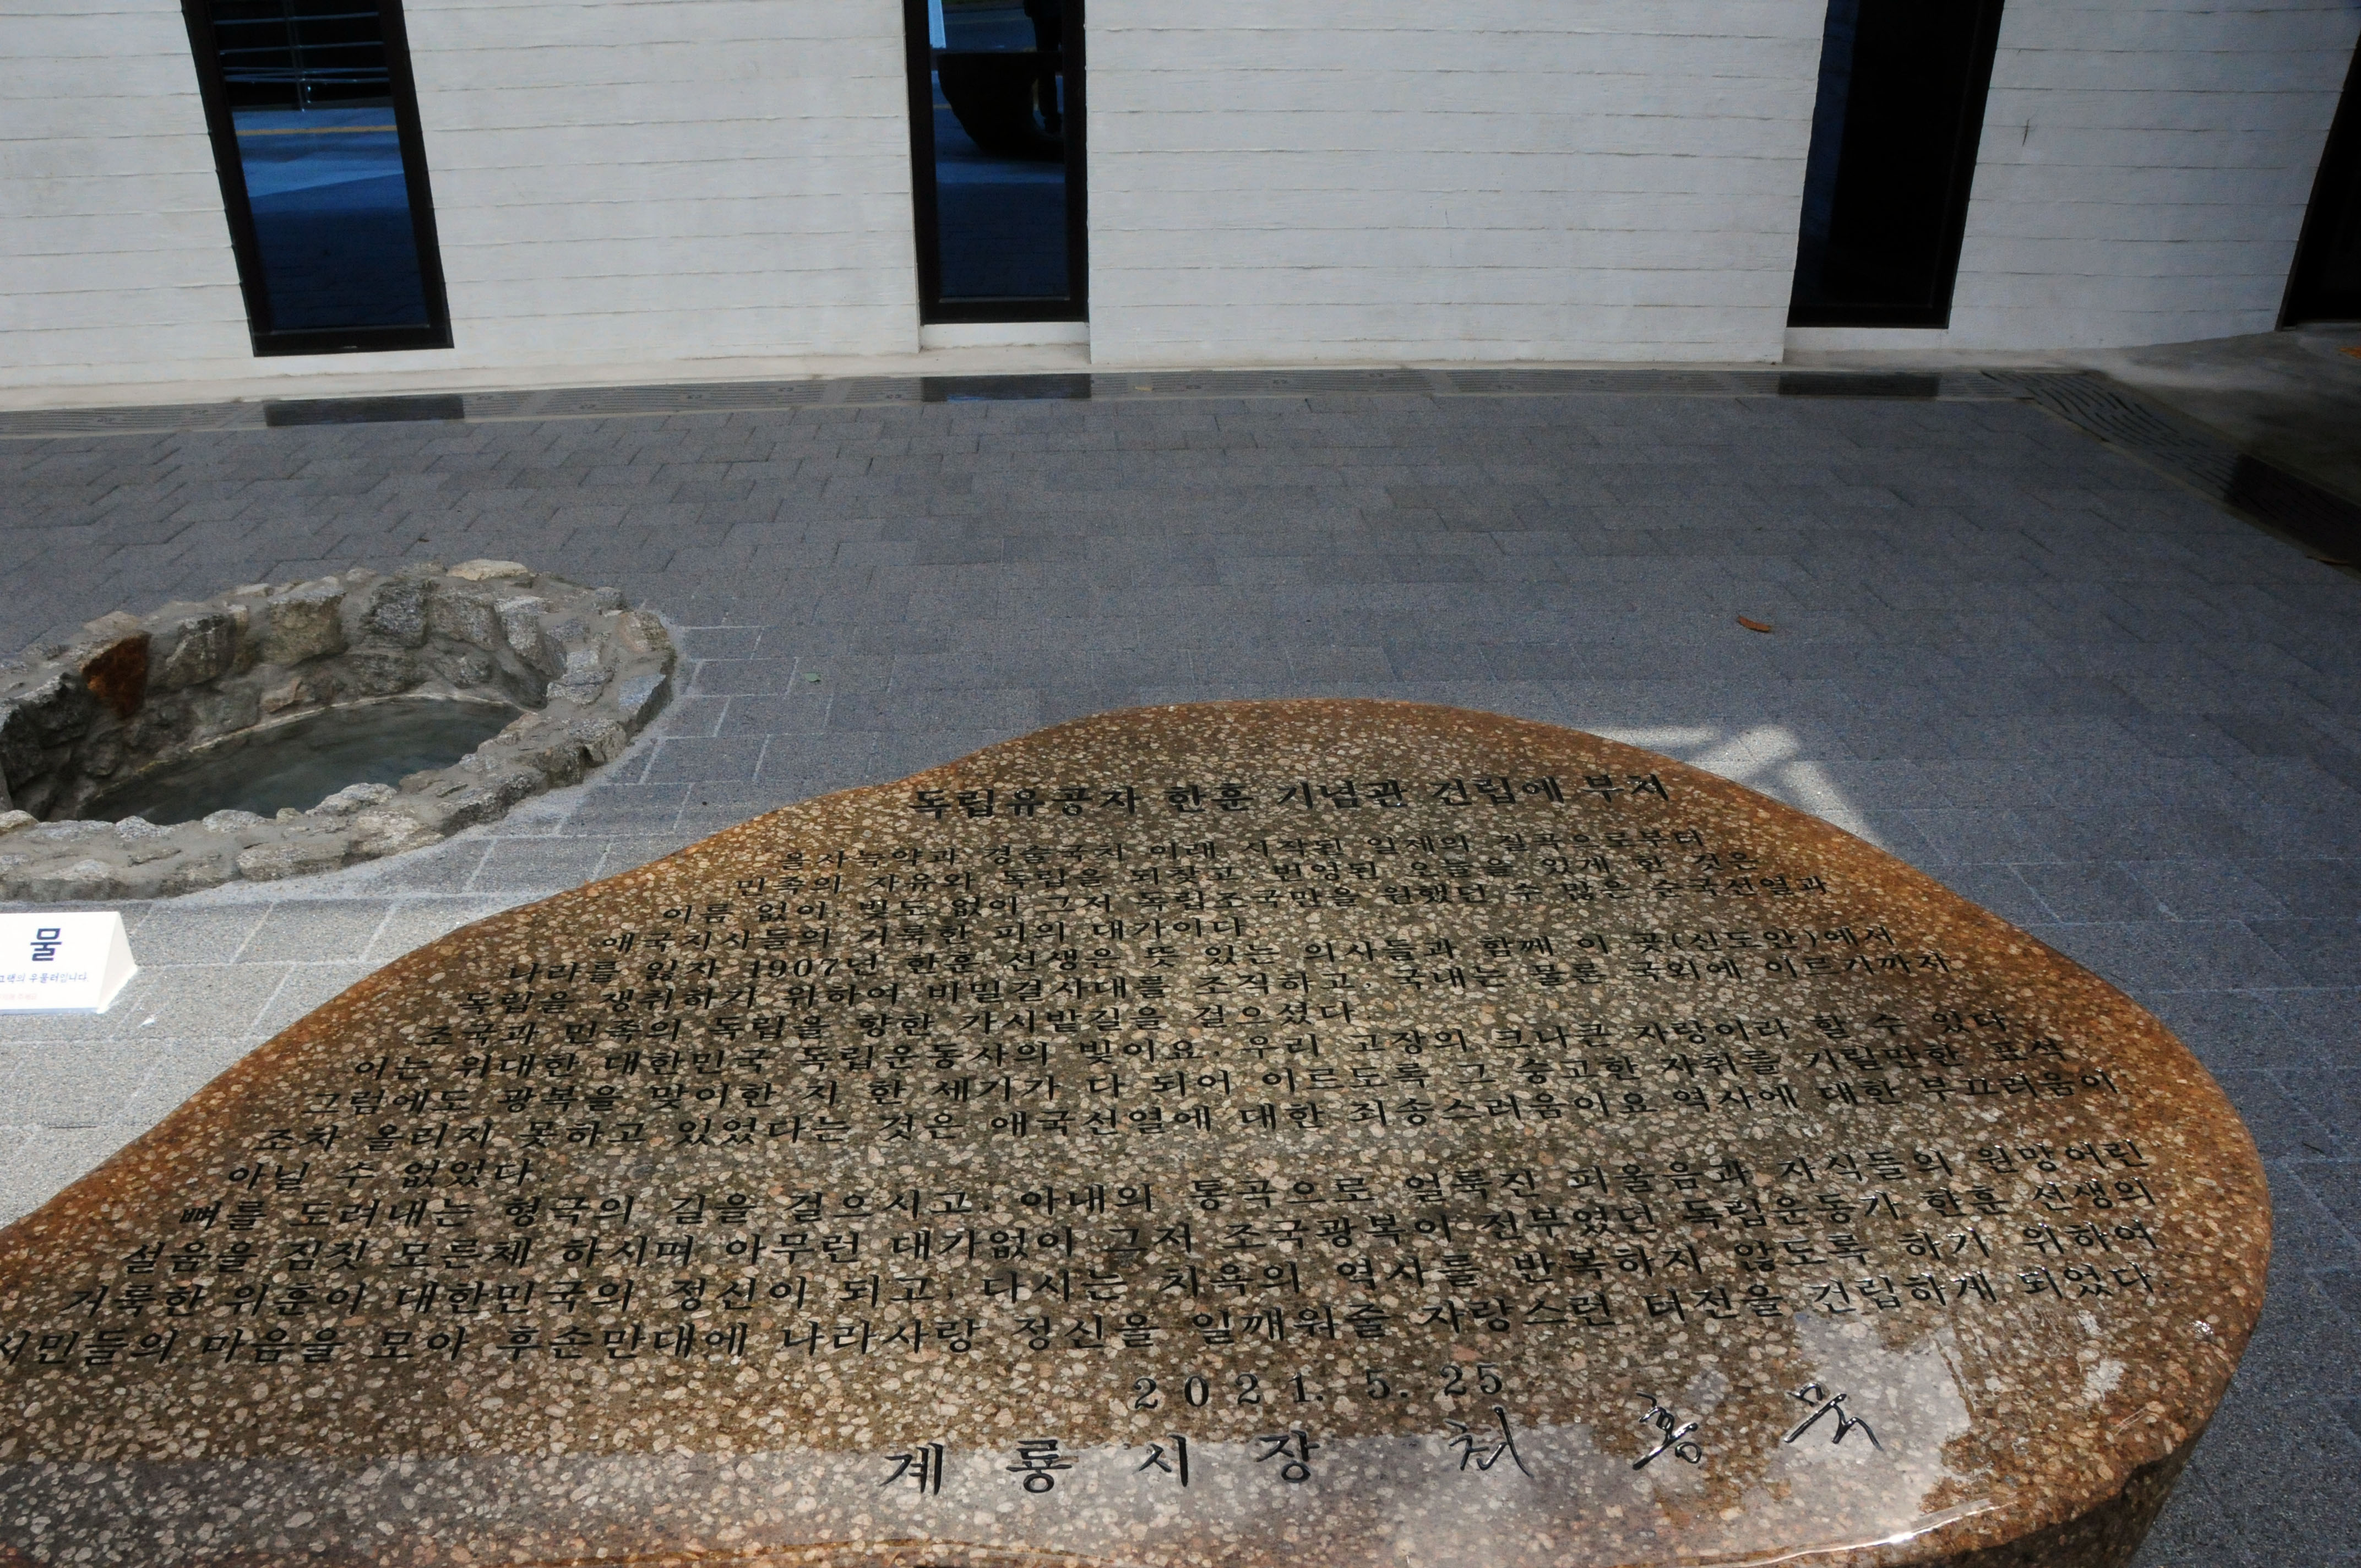 물
우물터입니다
독립유공자 한훈 기념관 건립에 부쳐
을사늑약과 경술국치 이래 시작된 일제의 질곡으로부터
민족의 자유와 독립을 되찾고, 번영된 오늘을 있게 한 것은
이름 없이, 빛도 없이 그저 독립조국만을 원했던 수 많은 순국선열과
애국지사들의 거룩한 피의 대가이다.
나라를 잃자 1907년 한훈 선생은 뜻 있는 의사들과 함께 이 곳(신도안)에서
독립을 쟁취하기 위하여 비밀결사대를 조직하고, 국내는 물론 국외에 이르기까지
조국과 민족의 독립을 향한 가시밭길을 걸으셨다.
이는 위대한 대한민국 독립운동사의 빛이요, 우리 고장의 크나큰 자랑이라 할 수 있다.
그럼에도 광복을 맞이한 지 한 세기가 다 되어 이르도록 그 숭고한 자취를 기릴만한 표석
조차 올리지 못하고 있었다는 것은 애국선열에 대한 죄송스러움이요 역사에 대한 부끄러움이
아닐 수 없었다.
뼈를 도려내는 형극의 길을 걸으시고, 아내의 통곡으로 얼룩진 피울음과 자식들의 원망어린
설움을 짐짓 모른체 하시며 아무런 대가없이 그저 조국광복이 전부였던 독립운동가 한훈 선생의
거룩한 위훈이 대한민국의 정신이 되고, 다시는 치욕의 역사를 반복하지 않도록 하기 위하여
시민들의 마음을 모아 후손만대에 나라사랑 정신을 일깨워줄 자랑스런 터전을 건립하게 되었다.
2021. 5. 25
계룡시장 최홍묵